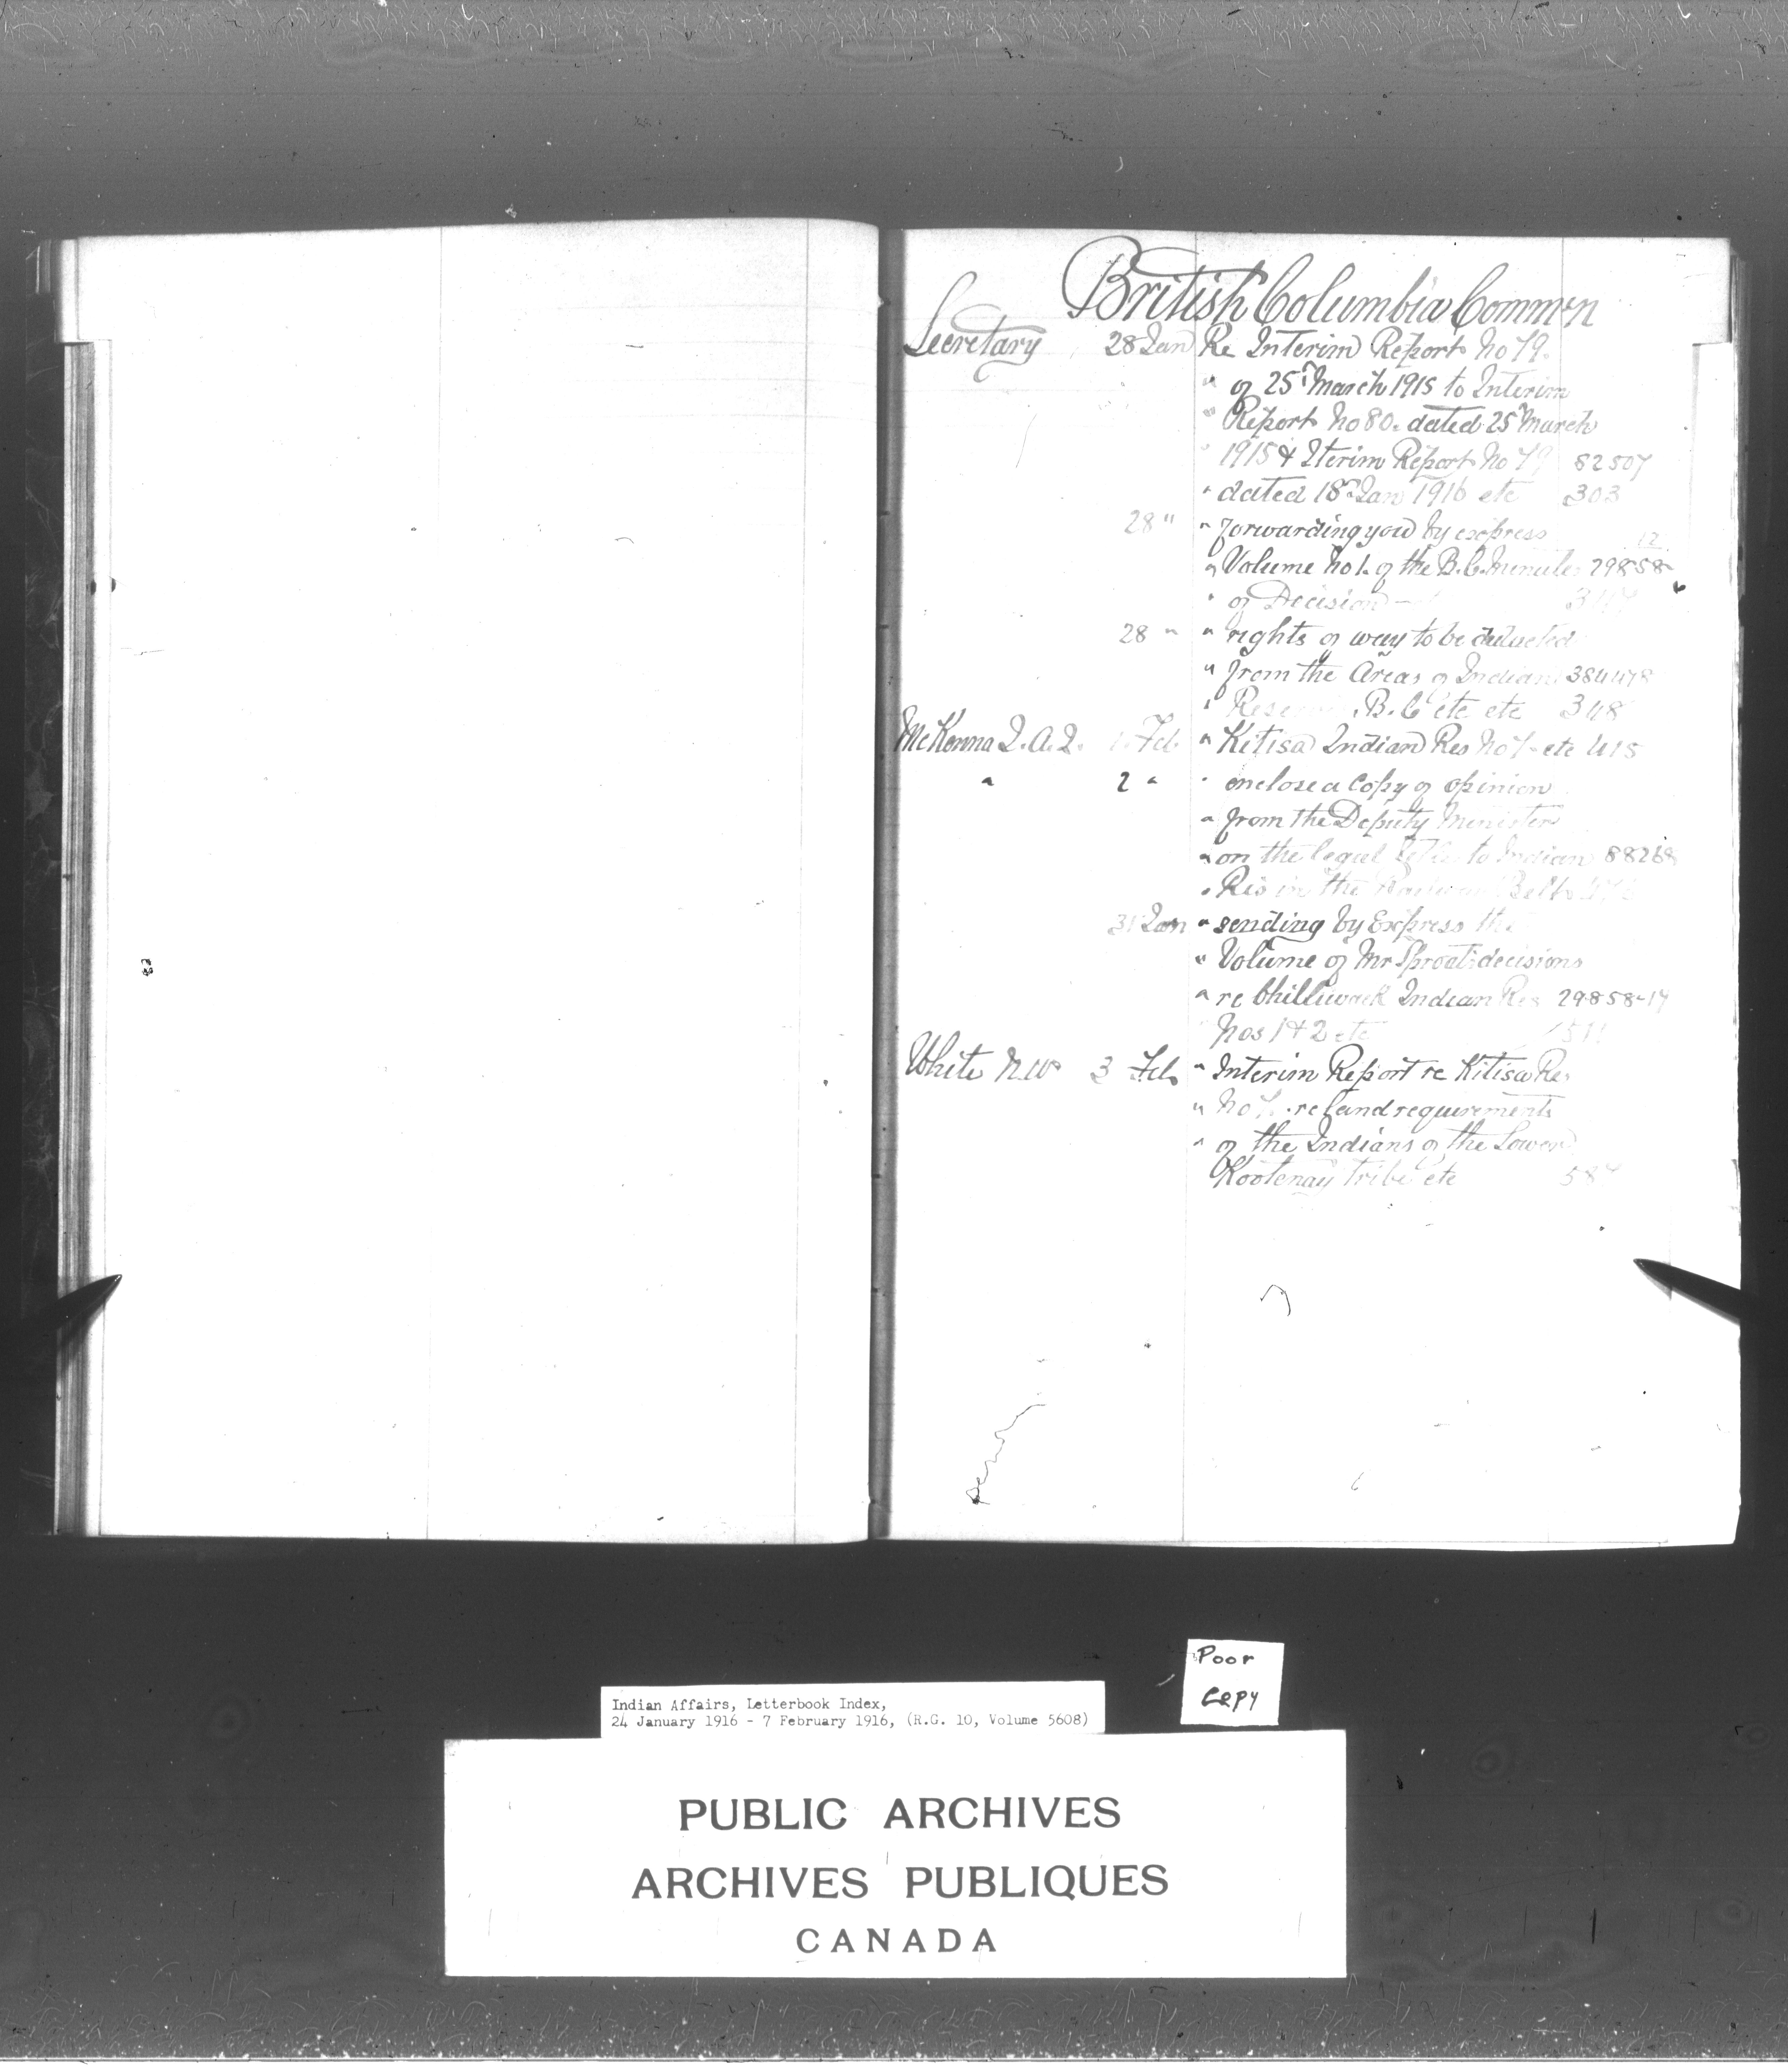 British Columbia Commn
Secretary 28 Jan Re Interim Report No 79.
" of 25th March 1915 to Interim
" Report No 80. dated 25th March
" 1915 & Iterim Report No 79 82507
" dated 18th Jan 1916 etc 303
28 " " forwarding you by express
12
" Volume No 1. of the B.C. Minutes 29858
" of Decision
28 " " rights of way to be deducted
" from the Areas of Indian 384478
" B.C etc etc 348
McKenna J.A.J. 1 Feb " Kitisa Indian Res No 7 etc 415
" 2 " " enclose a Copy of opinion
" from the Deputy Minister
" on the legal title to Indian 88268
" Res in the Railway Belt
31 Jan " sending by Express the
" Volume of Mr Sproat's decisions
" re Chilliwack Indian Res 29858-17
Nos 1 & 2 etc 511
White N.W 3 Feb " Interim Report re Kitisa Res
" No 7. re land requirements
" of the Indians of the Lower
Kootenay tribe etc
Poor
Copy
Indian Affairs, Letterbook Index,
24 January 1916 - 7 February 1916, (R.G. 10, Volume 5608)
PUBLIC ARCHIVES
ARCHIVES PUBLIQUES
CANADA